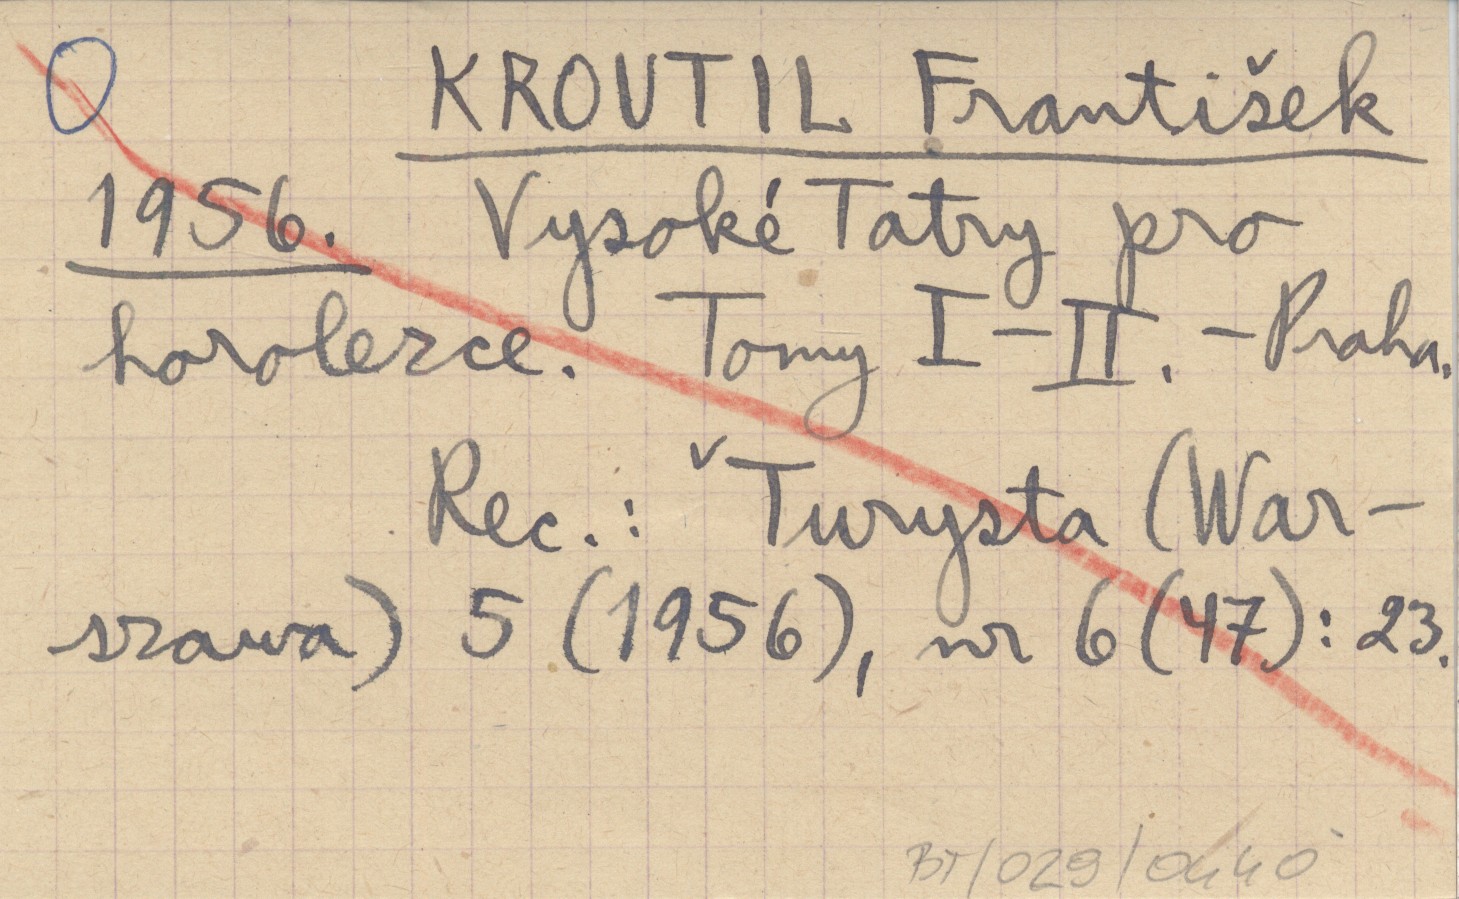 KROUTIL František
1956. Vysoké Tatry pro
horolezce. Tomy I-II. - Praha.
Rec.: ˇTurysta (War-
szawa) 5 (1956), nr 6 (47): 23.
BT/029/0440